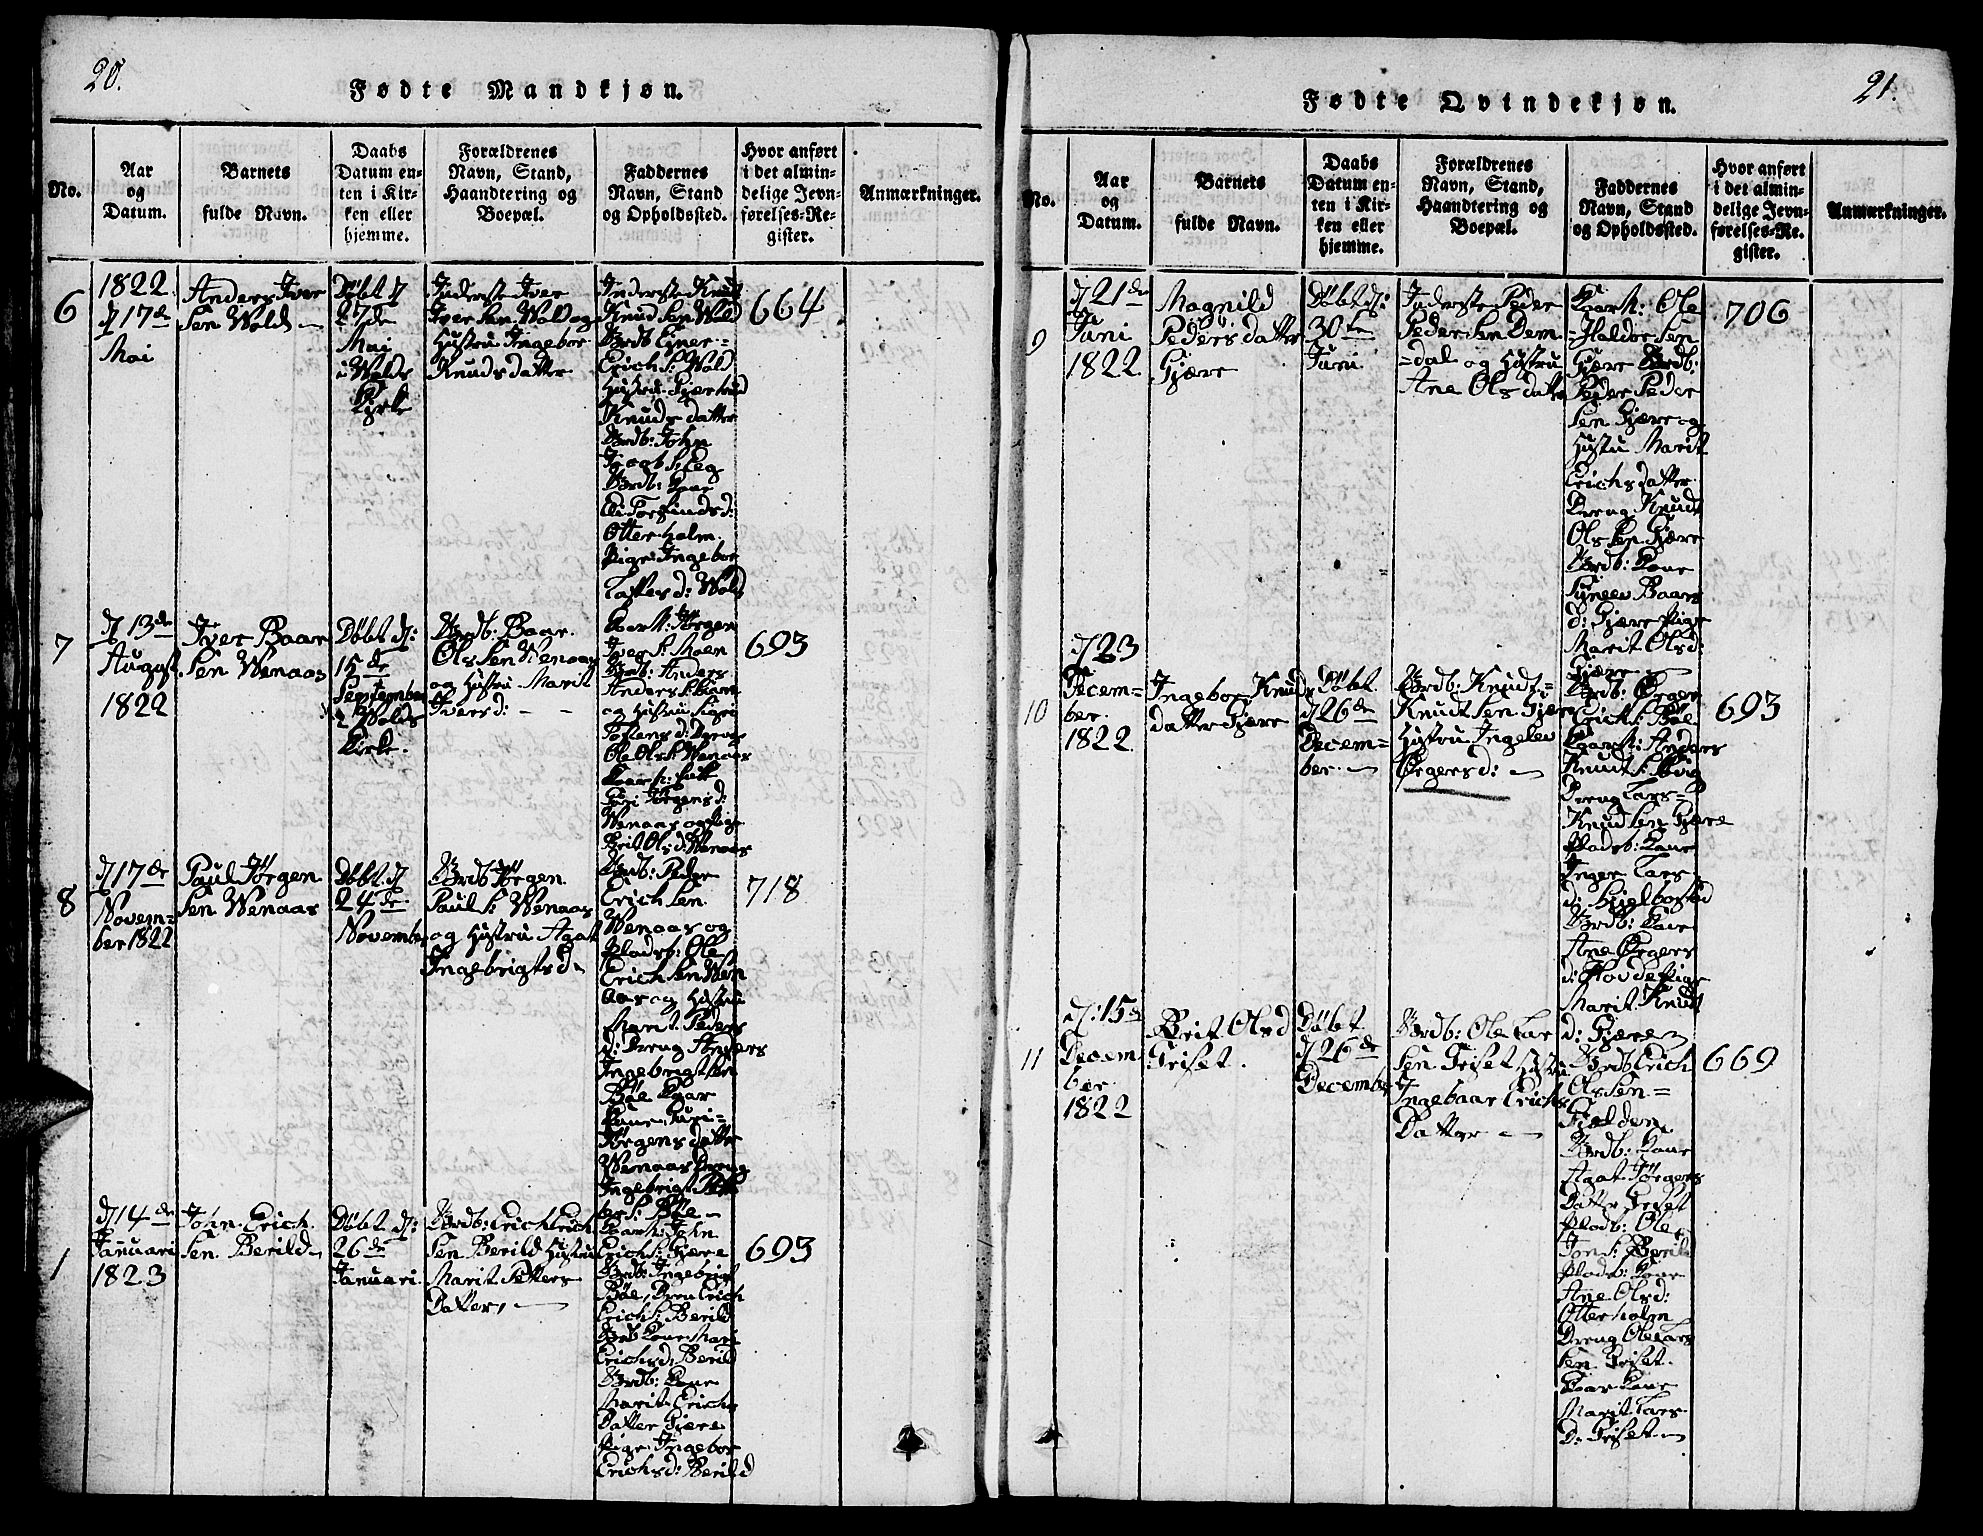 20.
Fødte Mandkjøn.
No.
Aar
og
Datum.
Barnets
fulde Navn.
Daabs
Datum en-
ten i Kir-
ken eller
hjemme.
Forældrenes
Navn, Stand,
Haandtering og
Boepæl.
Faddernes
Navn, Stand
og Opholdssted.
Hvor anført
i det almin-
delige Jevn-
førelses-Re-
gister.
Anmærkninger.
6
1822
d 17de
Mai
Anders Iver
Sen Wold
Döbt d
27de
Mai
i Wolds
Kirke
Inderste Iver
Iver Sen Wold og
Hustru Ingebor
Knuds datter
Inderste Knut
Knud Sen Wold
Erich S: Wold
Knuds datter
Brdb: John
Otterholm.
Pige Ingebor
d: Wold
664
7
d 13de
August
1822
Iver Baar
Sen Wenaas
Döbt d:
15de
September
i Wolds
Kirke.
Brdb: Baar
Ols Sen Wenaas
og Hustru Marit
Ivers d: - -
Kaarh: Jörgen
Iver S: Moen
Brdb: Anders
og Hustru Sigri
Ole Ols S: Wenaas
Jörgens d:
Wenaas og Pige
Brit Ols d: Wenaas
693
8
d 17de
Novem=
ber 1822
Paul Jörgen
Sen Wenaas
Döbt d
24de
November
Brdb Jörgen
Paul S: Wenaas
og Hustru Agat
Ingebrigts d
Brdb: Peder
Erich Sen
Wenaas og
Pladsb: Ole
Erich Sen Wen
Aas og Hustru
Marit Peders
d: Dreng Anders
Ingebrigt Sen
Böe Kaar
Kone, Guri=
Jörgens datter
Wenaas Dreng
Ingebrigt
ber S: Böe
718
1
d 14de
Januari
1823
John Erich
Sen Berild
Döbt d:
26de
Januari
Brdb: Erich Erich
Sen Berild Hustru
Marit Petters
Datter,
Kaarh: John
Erich S: Gjære
Brdb: Ingebrigt
Böe, Dren Erich
Erich S: Berild
Brdb Kone Mari
Erichsd: Berild
Brdb: Kone
Marit Erichs
Datter Gjære
Pige Ingebor
Erichsd: Berild
693
21.
Fødte Qvindekjøn.
No.
Aar
og
Datum.
Barnets
fulde Navn.
Daabs
Datum en-
ten i Kir-
ken eller
hjemme.
Forældrenes
Navn, Stand,
Haandtering og
Boepæl.
Faddernes
Navn, Stand
og Opholdssted.
Hvor anført
i det almin-
delige Jevn-
førelses-Re-
gister.
Anmærkninger.
9
d 21de
Juni
1822
Magnild
Peders datter
Gjære
Döbt d:
30te
Juni
Inderste Peder
Peder Sen Dem
=dal og Hustru
Ane Ols datter
Kaarh: Ole
=Haldor Sen
Gjære Brdb:
Peder Peder
Sen Gjære og
Hustru Marit
Erichs datter
Dreng Knudt
Ols Sen Gjære
Brdb: Kone
Baars
d: Gjære Pige
Marit Olsd:
Gjære
706
10
d 23
Decem=
ber
1822
Ingebor Knuds
datter Gjære
Döbt
d 26de
Decem=
ber.
Brdb: Knudt=
Knudt Sen Gjære
Hustru Ingelev
Ørgers d:
Brdb: Ørger
Erich S: Böe
Kaarh: Anders
Knudt S:
Dreng Lars=
Knud Sen Gjære
Pladsb: Kone
Inger Lars
d: Hjelbostad
Brdb: Kone
Ane Ørgers
d: Hovde Pige
Marit Knudt
d: Gjære
693
11
d: 15de
Decem
ber
1822
Berit Olsd
Triset.
Döbt
d 26de
December
Brdb: Ole Lar
Sen Triset Hustru
Ingebaar Erichs
Datter
Brdb Erich
Ols Sen=
Brdb: Kone
Agat Jörgens
Datter Triset
Pladsb: Ole
Jon S: Berild
Pladsb: Kone
Ane Olsd:
Otterholm
Dreng Ole Lars
Sen Triset.
Kaar Kone
Marit Lars
D: Triset
669